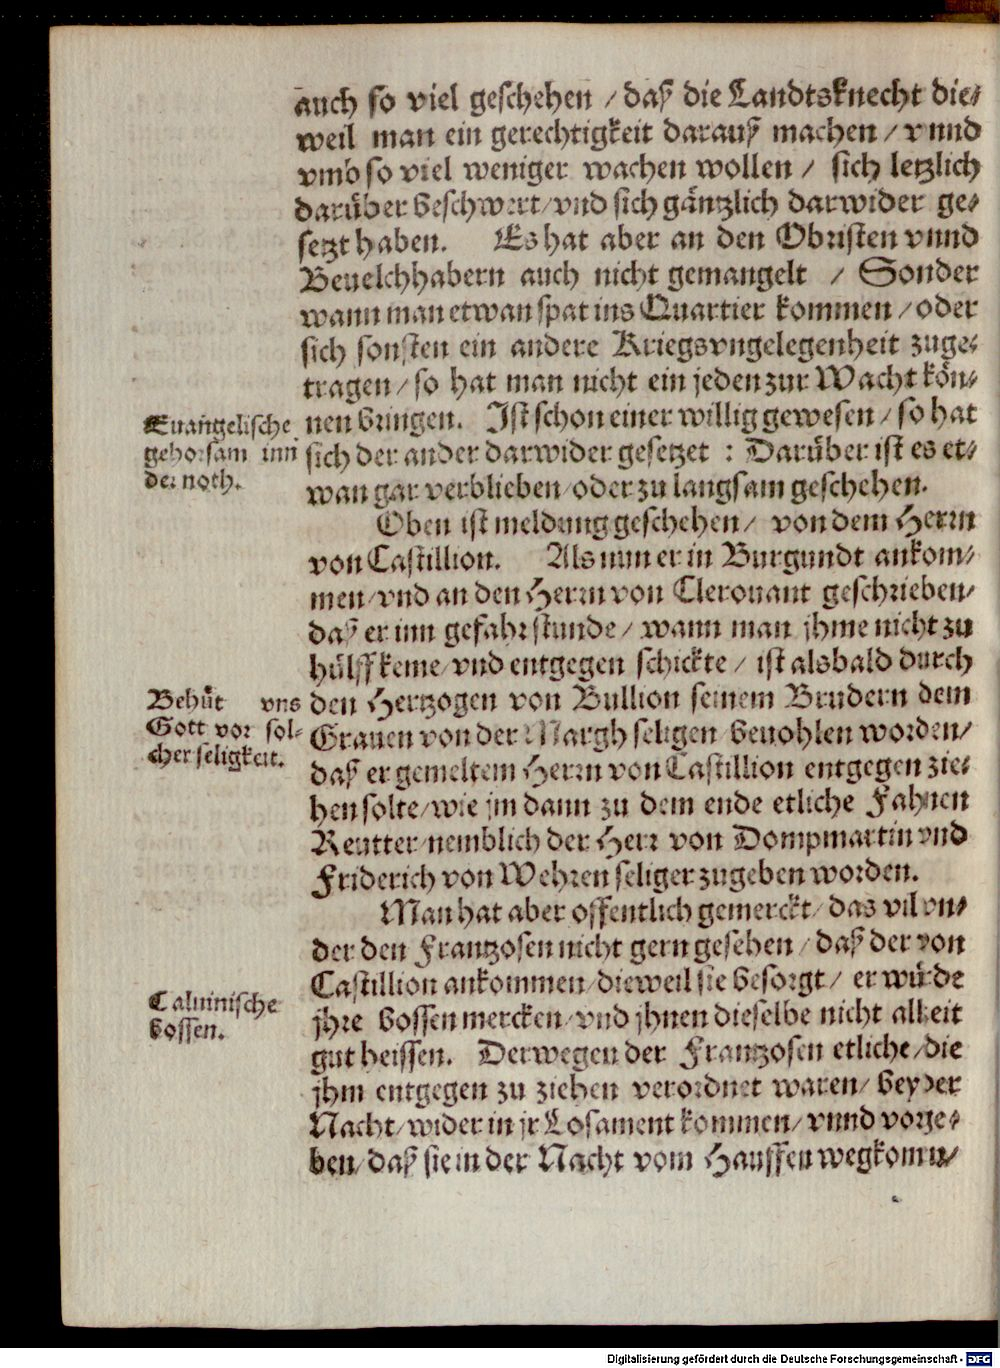 auch so viel geschehen / daß die Landtsknecht die/
weil man ein gerechtigkeit darauß machen / vnnd
vmb so viel weniger wachen wollen / sich letzlich
darüber beschwert / vnd sich gäntzlich darwider ge/
setzt haben. Es hat aber an den Obristen vnnd
Beuelchhabern auch nicht gemangelt / Sonder
wann man etwan spat ins Quartier kommen / oder
sich sonsten ein andere Kriegsvngelegenheit zuge/
tragen / so hat man nicht ein jeden zur Wacht kön/
nen bringen. Ist schon einer willig gewesen / so hat
sich der ander darwider gesetzet : Darüber ist es et/
wan gar verblieben / oder zu langsam geschehen.
Euangelische
gehorsam inn
der noth.
Oben ist meldung geschehen / von dem Herrn
von Castillion. Als nun er in Burgundt ankom/
men / vnd an den Herrn von Cleruant geschrieben /
daß er inn gefahr stunde / wann man jhme nicht zu
hülff keme / vnd entgegen schickte / ist alsbald durch
den Hertzogen von Bullion seinem Brudern dem
Grauen von der Margh seligen beuohlen worden /
daß er gemeltem Herrn von Castillion entgegen zie/
hen solte / wie jm dann zu dem ende etliche Fahnen
Reutter / nemblich der Herr von Dompmartin vnd
Friderich von Wehren seliger zugeben worden.
Behüt vns
Gott vor sol-
cher seligkeit.
Man hat aber offentlich gemerckt / das vil vn/
der den Frantzosen nicht gern gesehen / daß der von
Castillion ankommen / dieweil sie besorgt / er würde
jhre bossen mercken / vnd jhnen dieselbe nicht allzeit
gut heissen. Derwegen der Frantzosen etliche / die
jhm entgegen zu ziehen verordnet waren / bey der
Nacht / wider in jr Losament kommen / vnnd vorge/
ben / daß sie in der Nacht vom Hauffen wegkomm/
Caluinische
bossen.
Digitalisierung gefördert durch die Deutsche Forschungsgemeinschaft - DFG